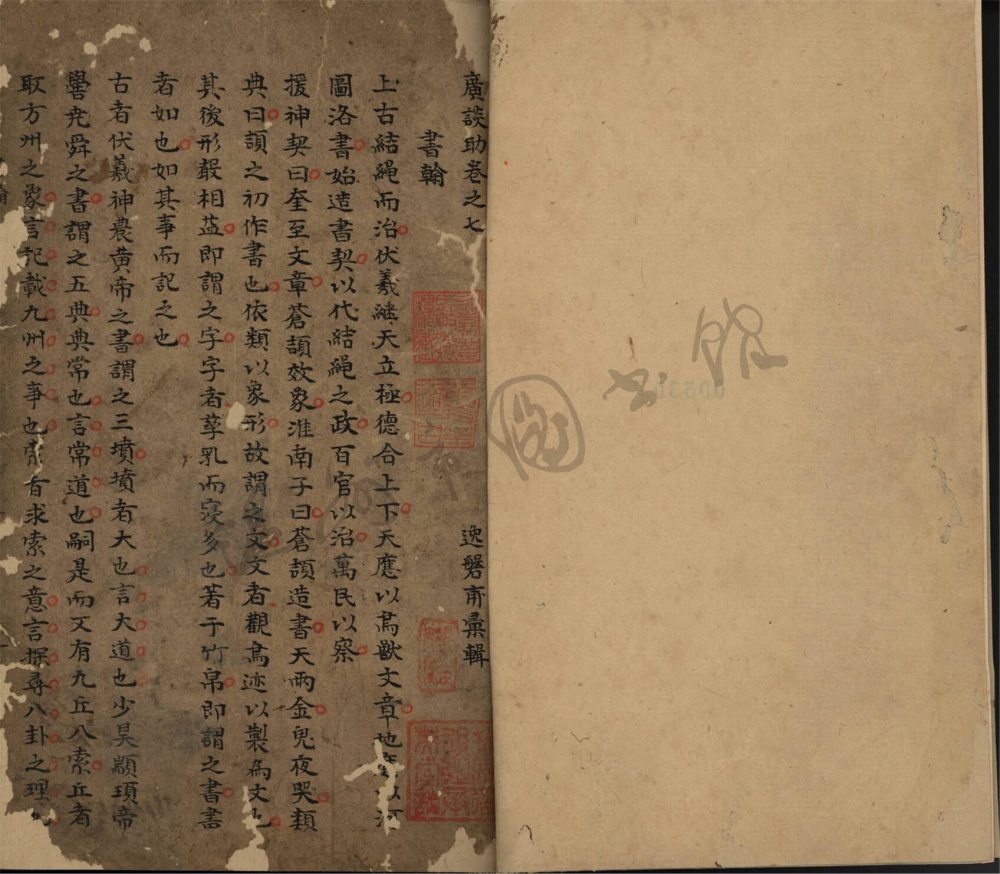 廣談助卷之七 逸磐甫彙輯
書翰
上古結繩而治伏羲繼天立極德合上下天應以鳥獸文章地應以河
圖洛書始造書契以代結繩之政百官以治萬民以察
援神契曰奎主文章蒼頡效象淮南子曰蒼頡造書天雨金鬼夜哭類
典曰頡之初作書也依類以象形故謂之文文者觀鳥迹以製為文也
其後形聲相益即謂之字字者孳乳而寖多也著于竹帛即謂之書書
者如也如其事而記之也
古者伏羲神農黄帝之書謂之三墳墳者大也言大道也少昊顓頊帝
嚳尭舜之書謂之五典典常也言常道也嗣是而又有九丘八索丘者
取方州之象言記載九州之事也索者求索之意言探尋八卦之理也